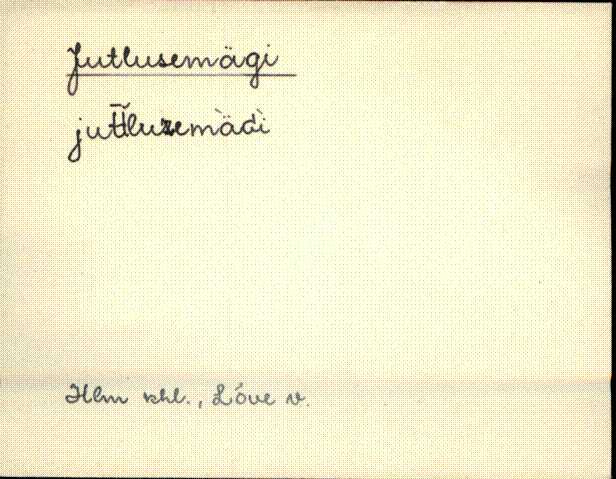 Jutlusemägi
jut̄luzemäɢi
Hlm khl., Lõve v.